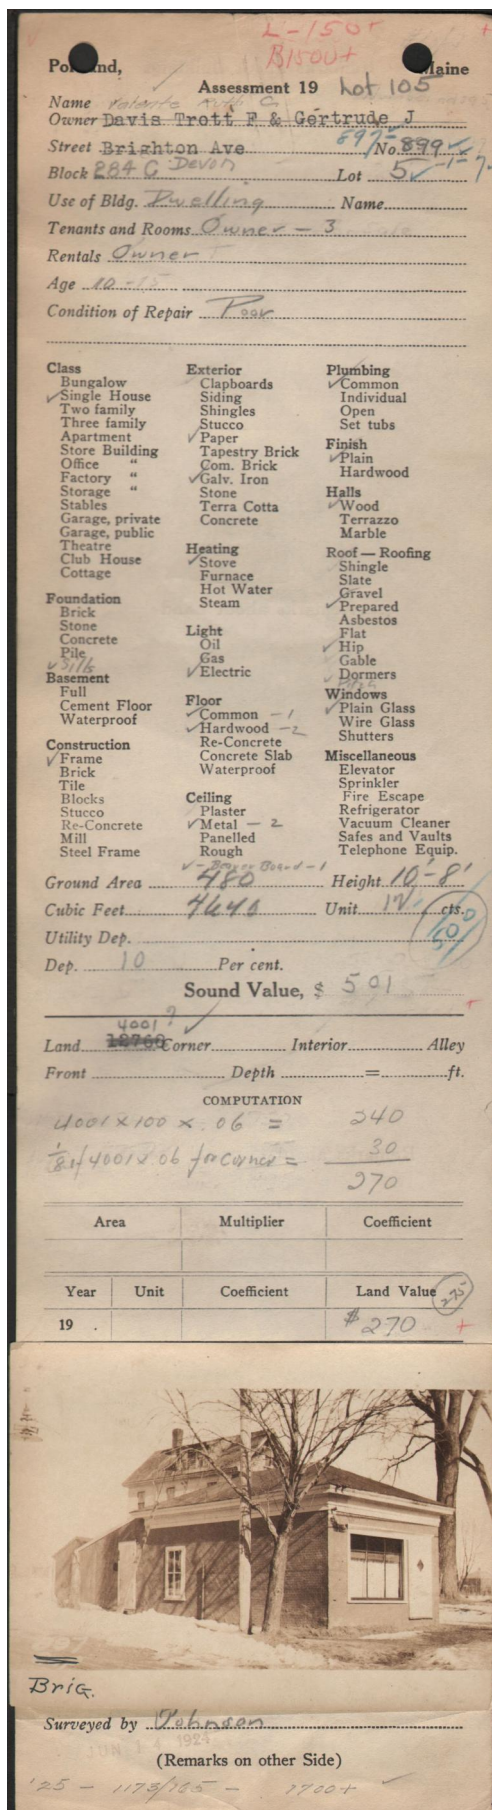 L-150+
B1500+
Portland, Maine
Assessment 19 Lot 105
Name
Owner Davis Trott F & Gertrude J
897-
Street Brighton Ave No. 899
Block 284 C Devon Lot 5
Use of Bldg. Dwelling Name
Tenants and Rooms Owner - 3
Rentals Owner
Age 10-15
Condition of Repair Poor
Class
Bungalow
✓Single House
Two family
Three family
Apartment
Store Building
Office "
Factory "
Storage "
Stables
Garage, private
Garage, public
Theatre
Club House
Cottage
Foundation
Brick
Stone
Concrete
Pile
✓Sills
Basement
Full
Cement Floor
Waterproof
Construction
✓Frame
Brick
Tile
Blocks
Stucco
Re-Concrete
Mill
Steel Frame
Exterior
Clapboards
Siding
Shingles
Stucco
✓Paper
Tapestry Brick
Com. Brick
✓Galv. Iron
Stone
Terra Cotta
Concrete
Heating
✓Stove
Furnace
Hot Water
Steam
Light
Oil
Gas
✓Electric
Floor
✓Common - 1
✓Hardwood - 2
Re-Concrete
Concrete Slab
Waterproof
Ceiling
Plaster
✓Metal - 2
Panelled
Rough
✓-Beaver Board-1
Plumbing
✓Common
Individual
Open
Set tubs
Finish
✓Plain
Hardwood
Halls
✓Wood
Terrazzo
Marble
Roof — Roofing
Shingle
Slate
Gravel
✓Prepared
Asbestos
Flat
✓Hip
Gable
Dormers
Windows
✓Plain Glass
Wire Glass
Shutters
Miscellaneous
Elevator
Sprinkler
Fire Escape
Refrigerator
Vacuum Cleaner
Safes and Vaults
Telephone Equip.
Ground Area 480 Height 10'-8'
Cubic Feet 4640 Unit 12 cts.
Utility Dep.
Dep. 10 Per cent.
Sound Value, $ 501
4001 ?
Land 12760 Corner Interior Alley
Front Depth = ft.
COMPUTATION
4001 x 100 x .06 = 240
1/8 of 4001 x .06 for Corner = 30
270
Area Multiplier Coefficient
Year Unit Coefficient Land Value 275-
19 . $ 270 +
Brig.
Surveyed by Johnson
(Remarks on other Side)
'25 - 1173/765 - 1700+ ✓